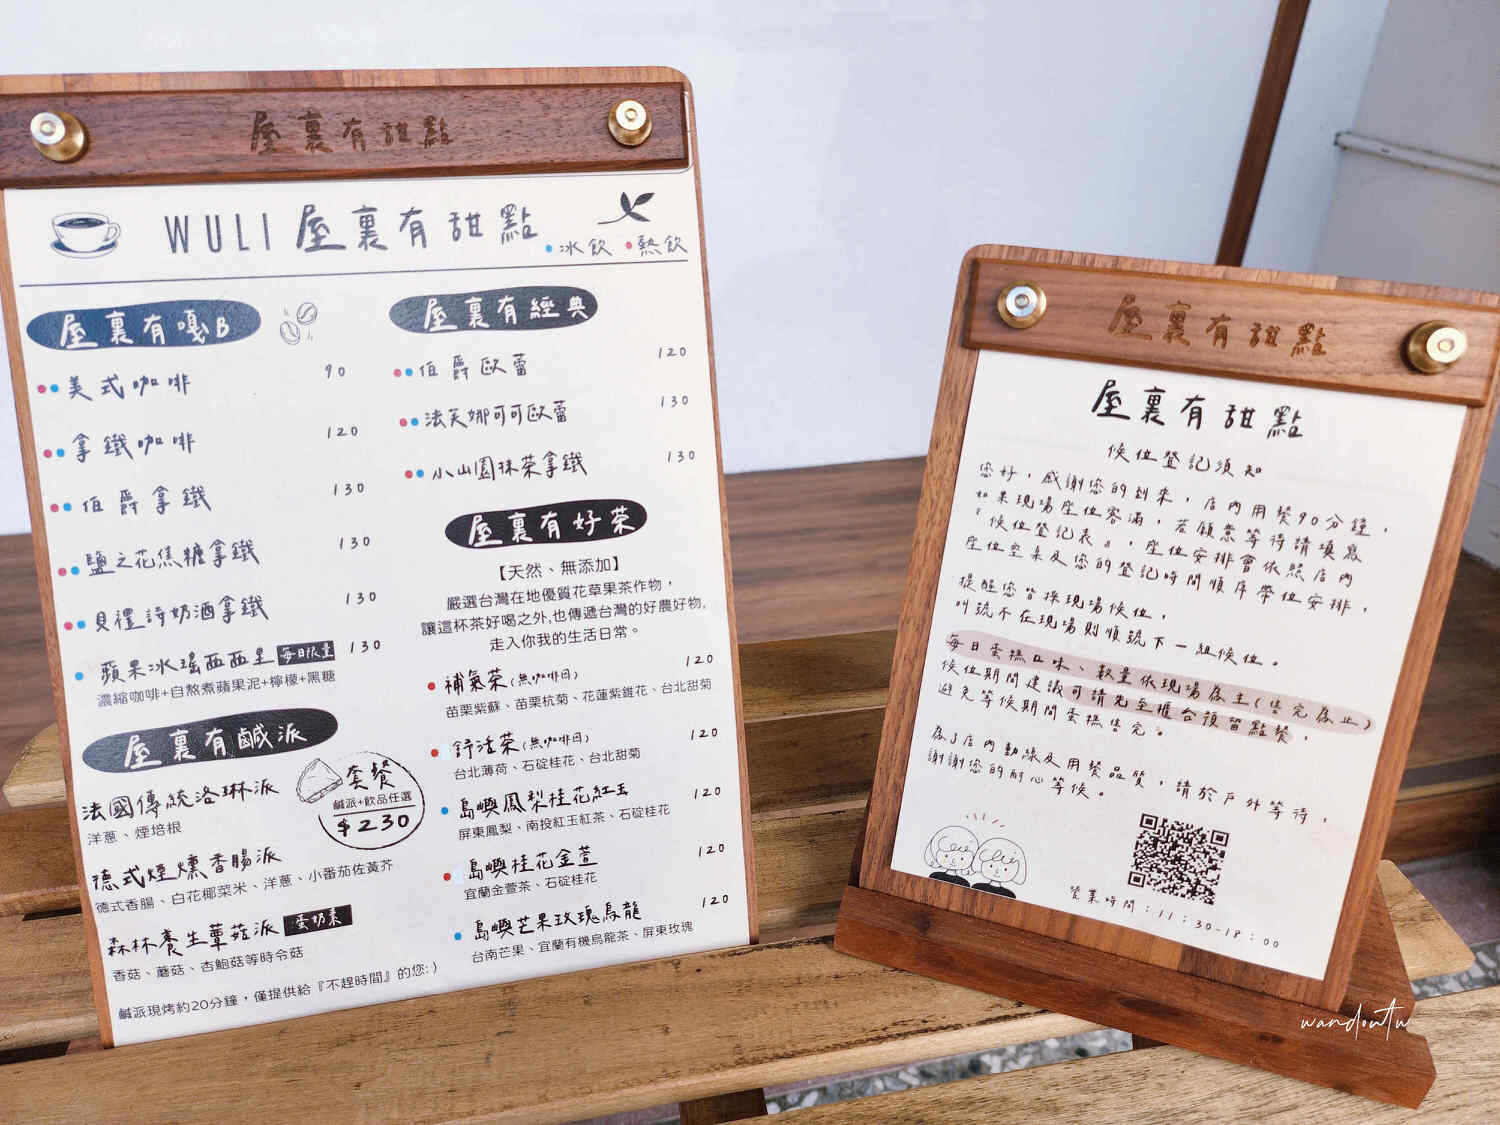 屋裏有甜點
WULI 屋裏有甜點
冰飲 熱飲
屋裏有嘎B
美式咖啡 90
拿鐵咖啡 120
伯爵拿鐵 130
鹽之花焦糖拿鐵 130
貝禮詩奶酒拿鐵 130
蘋果冰瑤西西里 每日限量 130
濃縮咖啡+自熬煮蘋果泥+檸檬+黑糖
屋裏有鹹派
法國傳統洛琳派
洋蔥、煙培根
德式煙燻香腸派
德式香腸、白花椰菜米、洋蔥、小番茄佐黃芥
森林養生蕈菇派 蛋奶素
香菇、蘑菇、杏鮑菇等時令菇
鹹派現烤約20分鐘，僅提供給『不趕時間』的您:)
套餐
鹹派+飲品任選
$230
屋裏有經典
伯爵歐蕾 120
法芙娜可可歐蕾 130
小山園抹茶拿鐵 130
屋裏有好茶
【天然、無添加】
嚴選台灣在地優質花草果茶作物，
讓這杯茶好喝之外,也傳遞台灣的好農好物,
走入你我的生活日常。
補氣茶(無咖啡因) 120
苗栗紫蘇、苗栗杭菊、花蓮紫錐花、台北甜菊
舒活茶(無咖啡因) 120
台北薄荷、石碇桂花、台北甜菊
島嶼鳳梨桂花紅玉 120
屏東鳳梨、南投紅玉紅茶、石碇桂花
島嶼桂花金萱 120
宜蘭金萱茶、石碇桂花
島嶼芒果玫瑰烏龍 120
台南芒果、宜蘭有機烏龍茶、屏東玫瑰
屋裏有甜點
屋裏有甜點
候位登記須知
您好，感謝您的到來，店內用餐90分鐘，
如果現場座位客滿，若願意等待請填寫
『候位登記表』，座位安排會依照店內
座位空桌及您的登記時間順序帶位安排，
提醒您皆採現場候位，
叫號不在現場則順號下一組候位。
每日蛋糕口味、數量依現場為主(售完為止)
候位期間建議可請先至櫃台預留點餐，
避免等候期間蛋糕售完。
為了店內動線及用餐品質，請於戶外等待，
謝謝您的耐心等候。
營業時間：11：30-18：00
wandoutw